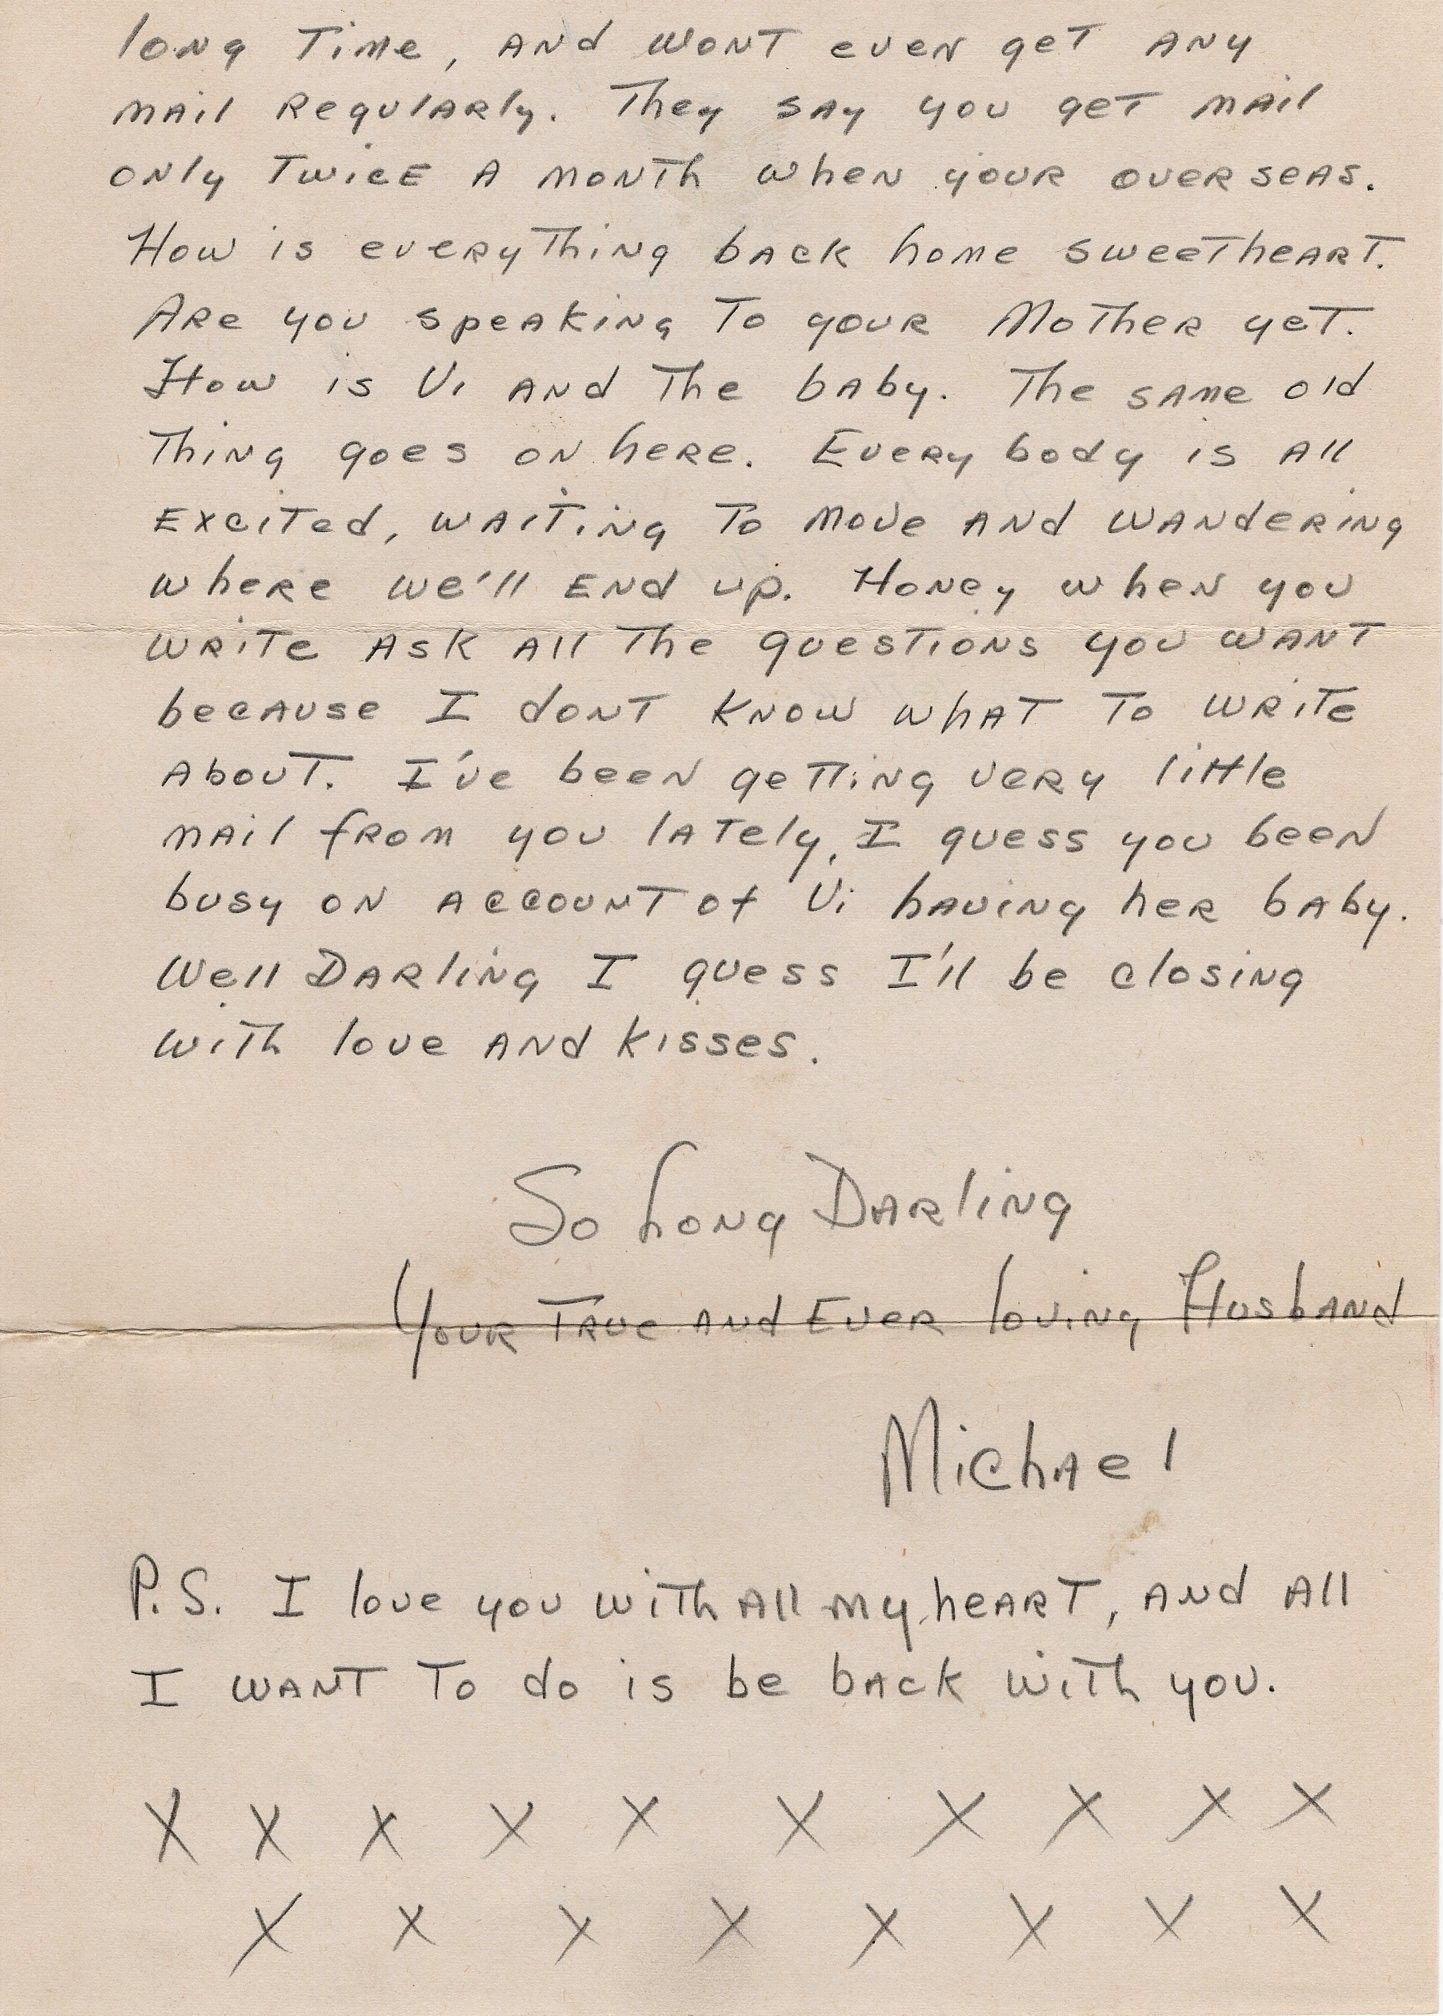 long Time, and wont even get any
mail Regularly. They say you get mail
only Twice a month when your over seas.
How is everything back home sweetheart.
Are you speaking To your Mother yet.
How is Vi and The baby. The same old
Thing goes on here. Every body is all
Excited, waiting To move and wandering
where we'll End up. Honey when you
write Ask All The questions you want
because I dont know what To write
about. I've been getting very little
mail from you lately, I guess you been
busy on account of Vi having her baby.
Well Darling I guess I'll be closing
with love and kisses.
So Long Darling
Your True and Ever loving Husband
Michael
P.S. I love you with all my heart, and all
I want To do is be back with you.
X X X X X X X X X X
X X X X X X X X